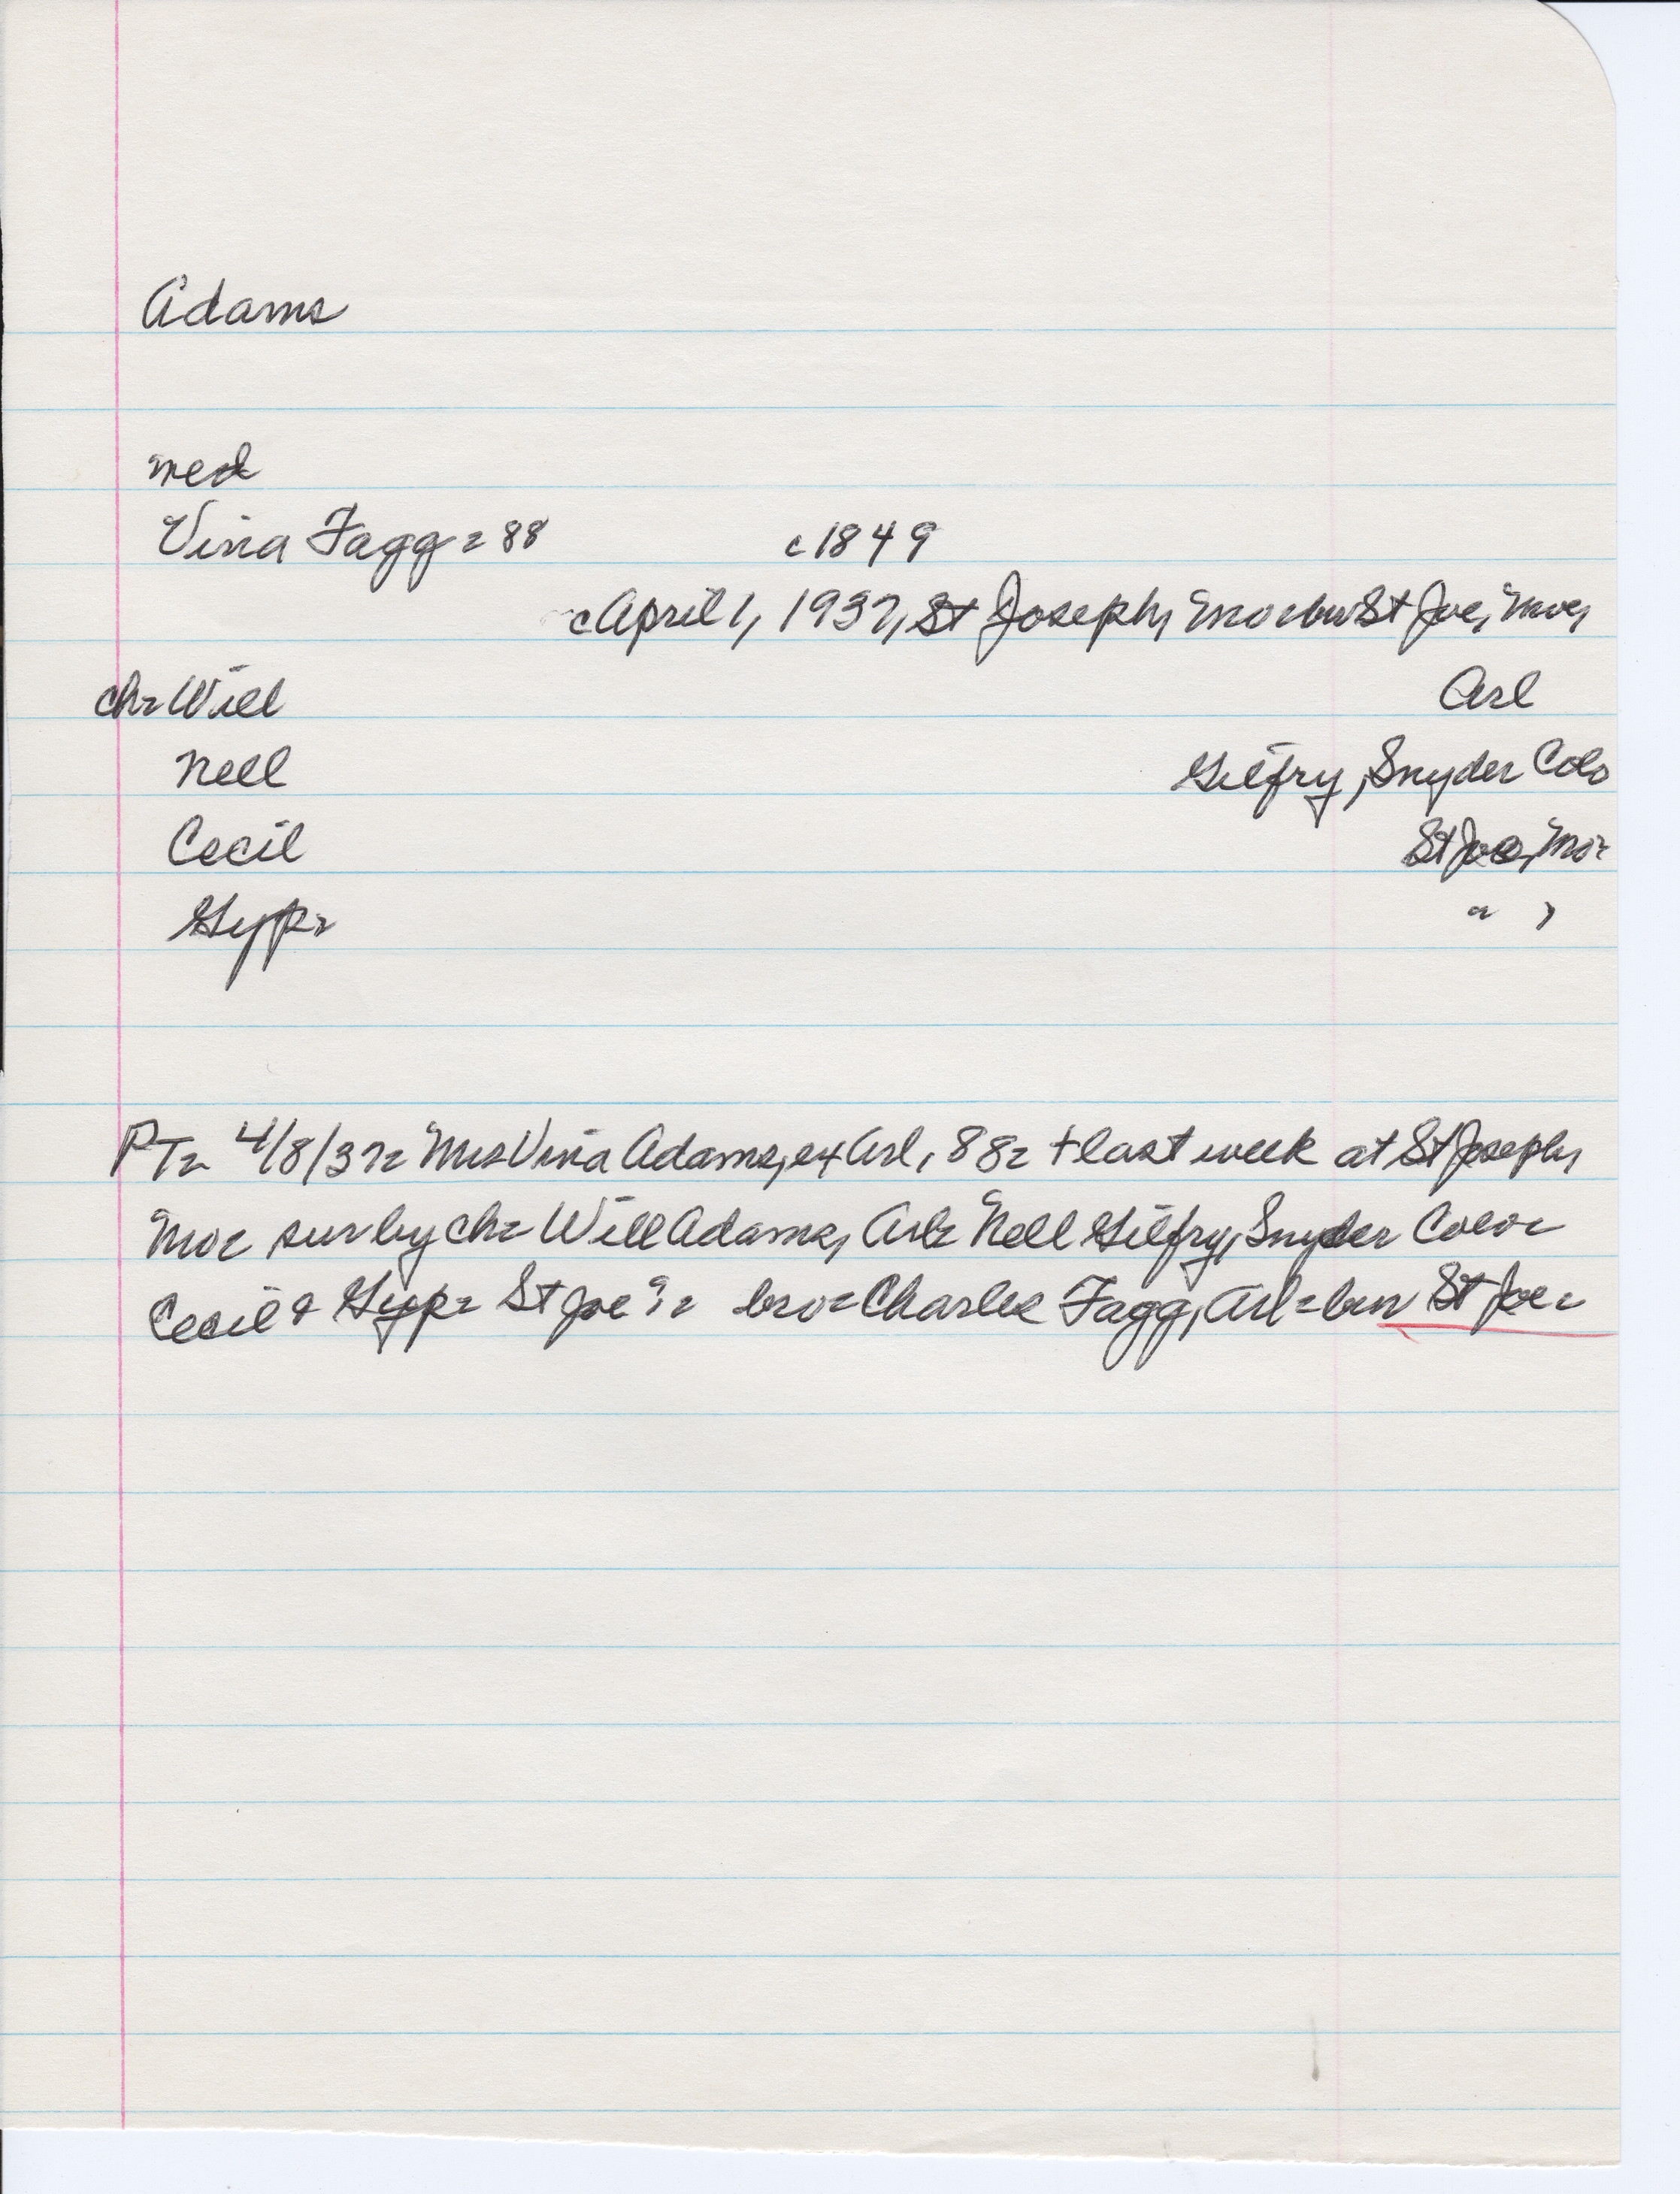 Adams
med
Vina Fagg = 88 c1849
c April 1, 1937, St Joseph, Mo = bur St Joe, Mo,
ch = Will Arl
Nell Gilfry, Snyder Colo
Cecil St Joe, Mo =
Gyp = " "
PT = 4/8/37 = Mrs Vina Adams, ex Arl, 88 = + last week at St Joseph,
Mo = sur by ch = Will Adams, Arl = Nell Gilfry, Snyder Colo =
Cecil & Gyp = St Joe = bro = Charles Fagg, Arl = bur St Joe =